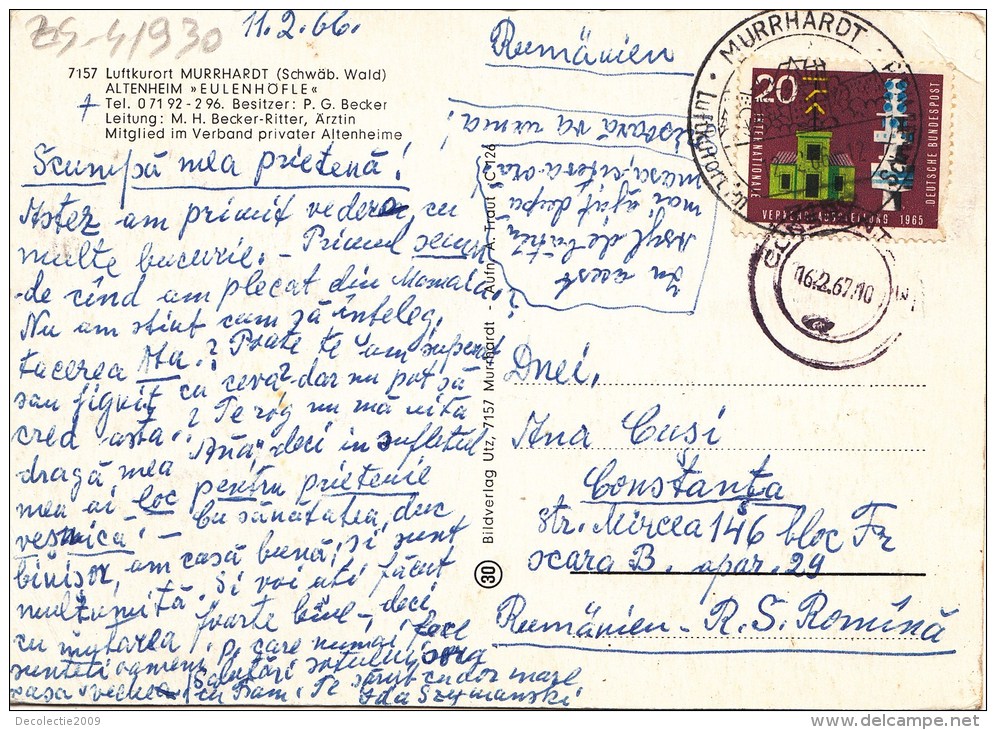 ZS-41930
11.2.66.
7157 Luftkurort MURRHARDT (Schwäb. Wald)
ALTENHEIM »EULENHÖFLE«
Tel. 0 71 92 - 2 96. Besitzer: P. G. Becker
Leitung: M. H. Becker-Ritter, Ärztin
Mitglied im Verband privater Altenheime
Scumpă mea prietenă!
Astez am primit vederea, cu
multe bucurie. - Primul semn
-de cînd am plecat din Mamaia.
Nu am stiut cum să înteleg,
tacerea Ata.? Poate te am superat
sau jignit cu ceva? dar nu pot să
cred asta..? Te rog nu mă uita
dragă mea Ană, deci in sufletul
mea ai loc pentru prietenie
vesnica! - Cu sănătatea, duc
binisor, am casă bună, si sunt
multumită. Si voi ati făcut
foarte bine -, deci
cu mutarea. p. care numai, face
sunteti oameni Salutări sotului,
casa veche cu Te sărut cu dor mare
Ida Szymanski
In acest
Asyl de bătrîni
mai, ajut după
masa,
Bildverlag Utz, 7157 Murrhardt - Aufn. A. Traut C 7126
30
Rumänien
MURRHARDT
LUFTKURORT
20
INTERNATIONALE
VERKEHRSAUSSTELLUNG 1965
DEUTSCHE BUNDESPOST
CONSTANTA
16.2.67.10
Dnei,
Ana Cusi
Constanța
str. Mircea 146 bloc Fz
scara B. apar. 29
Rumänien - R. S. Romînă
Decolectie2009
www.delcampe.net